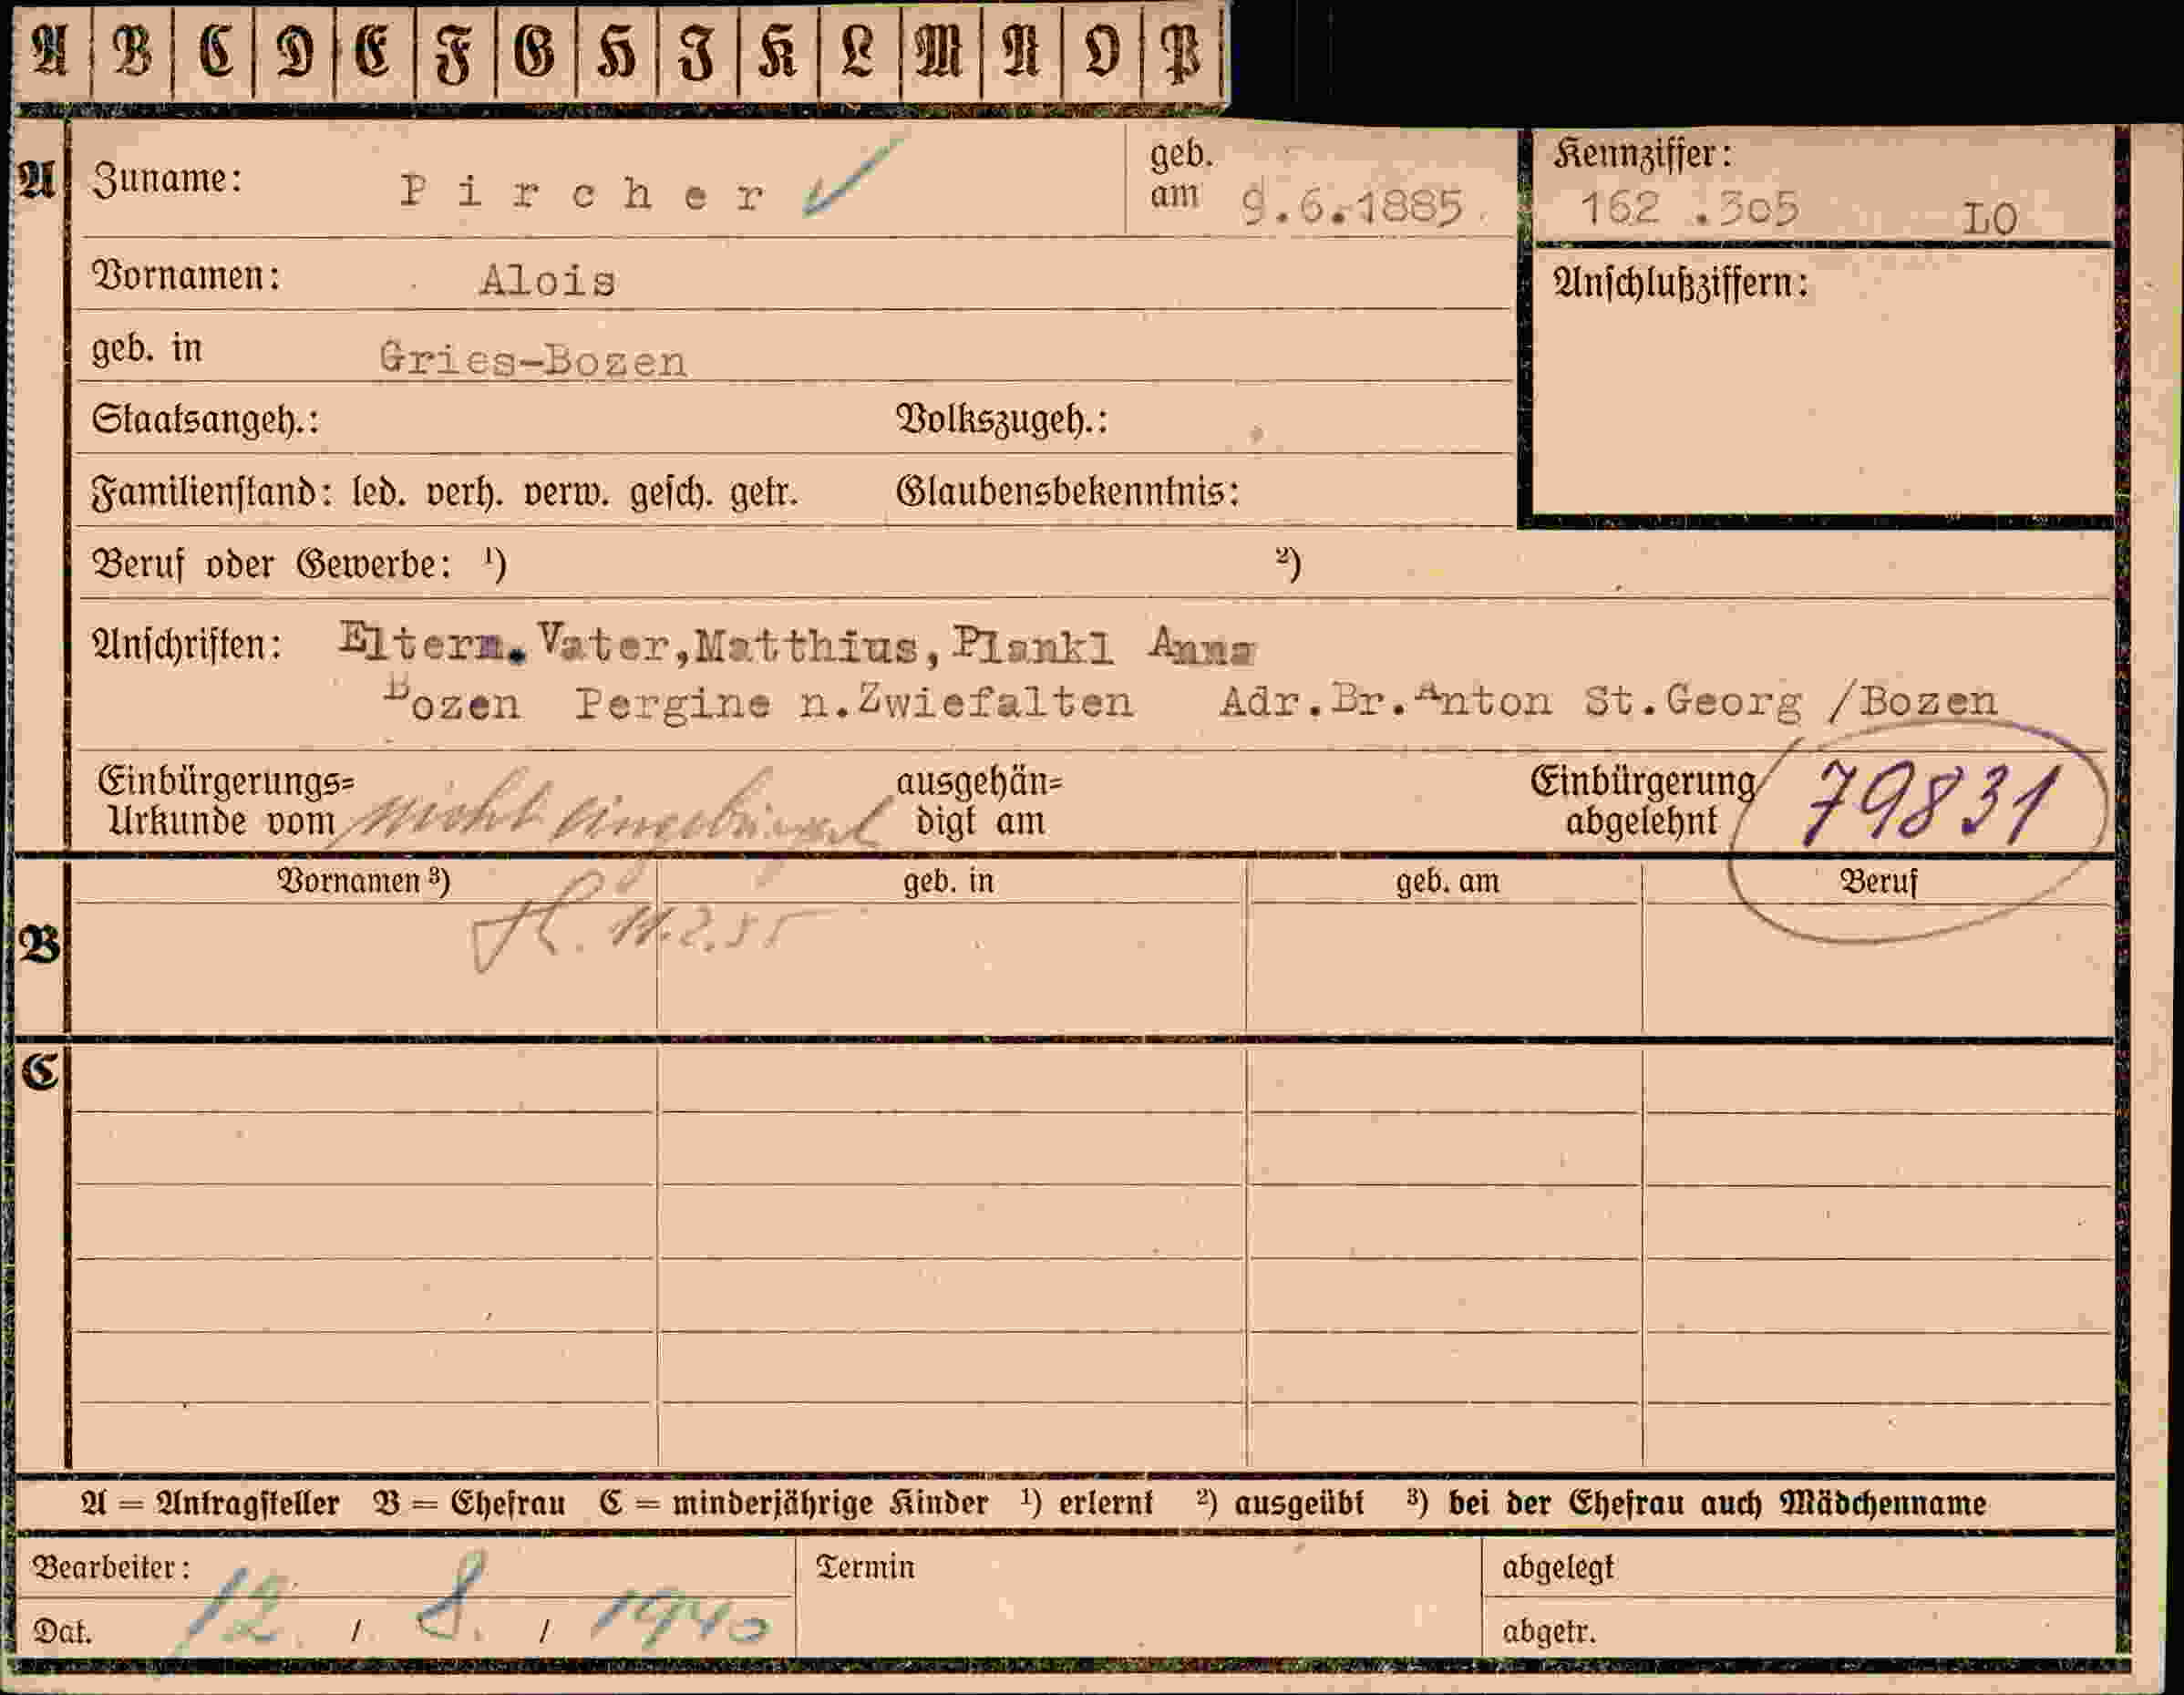 A B C D E F G H J K L M N O P
A Zuname: Pircher geb. am 9.6.1885. Kennziffer: 162 .3o5 LO
Vornamen: Alois Anschlußziffern:
geb. in Gries-Bozen
Staatsangeh.: Volkszugeh.:
Familienstand: led. verh. verw. gesch. getr. Glaubensbekenntnis:
Beruf oder Gewerbe: ¹) ²)
Anschriften: Eltern. Vater,Matthius,Plankl Anna
Bozen Pergine n.Zwiefalten Adr.Br.Anton St.Georg /Bozen
Einbürgerungs= ausgehän= Einbürgerung 79831
Urkunde vom nicht eingebürgert digt am abgelehnt
Vornamen ³) geb. in geb. am Beruf
B 11.2.55
C
A = Antragsteller B = Ehefrau C = minderjährige Kinder ¹) erlernt ²) ausgeübt ³) bei der Ehefrau auch Mädchenname
Bearbeiter: Termin abgelegt
Dat. 12. / 8. / 1940 abgetr.